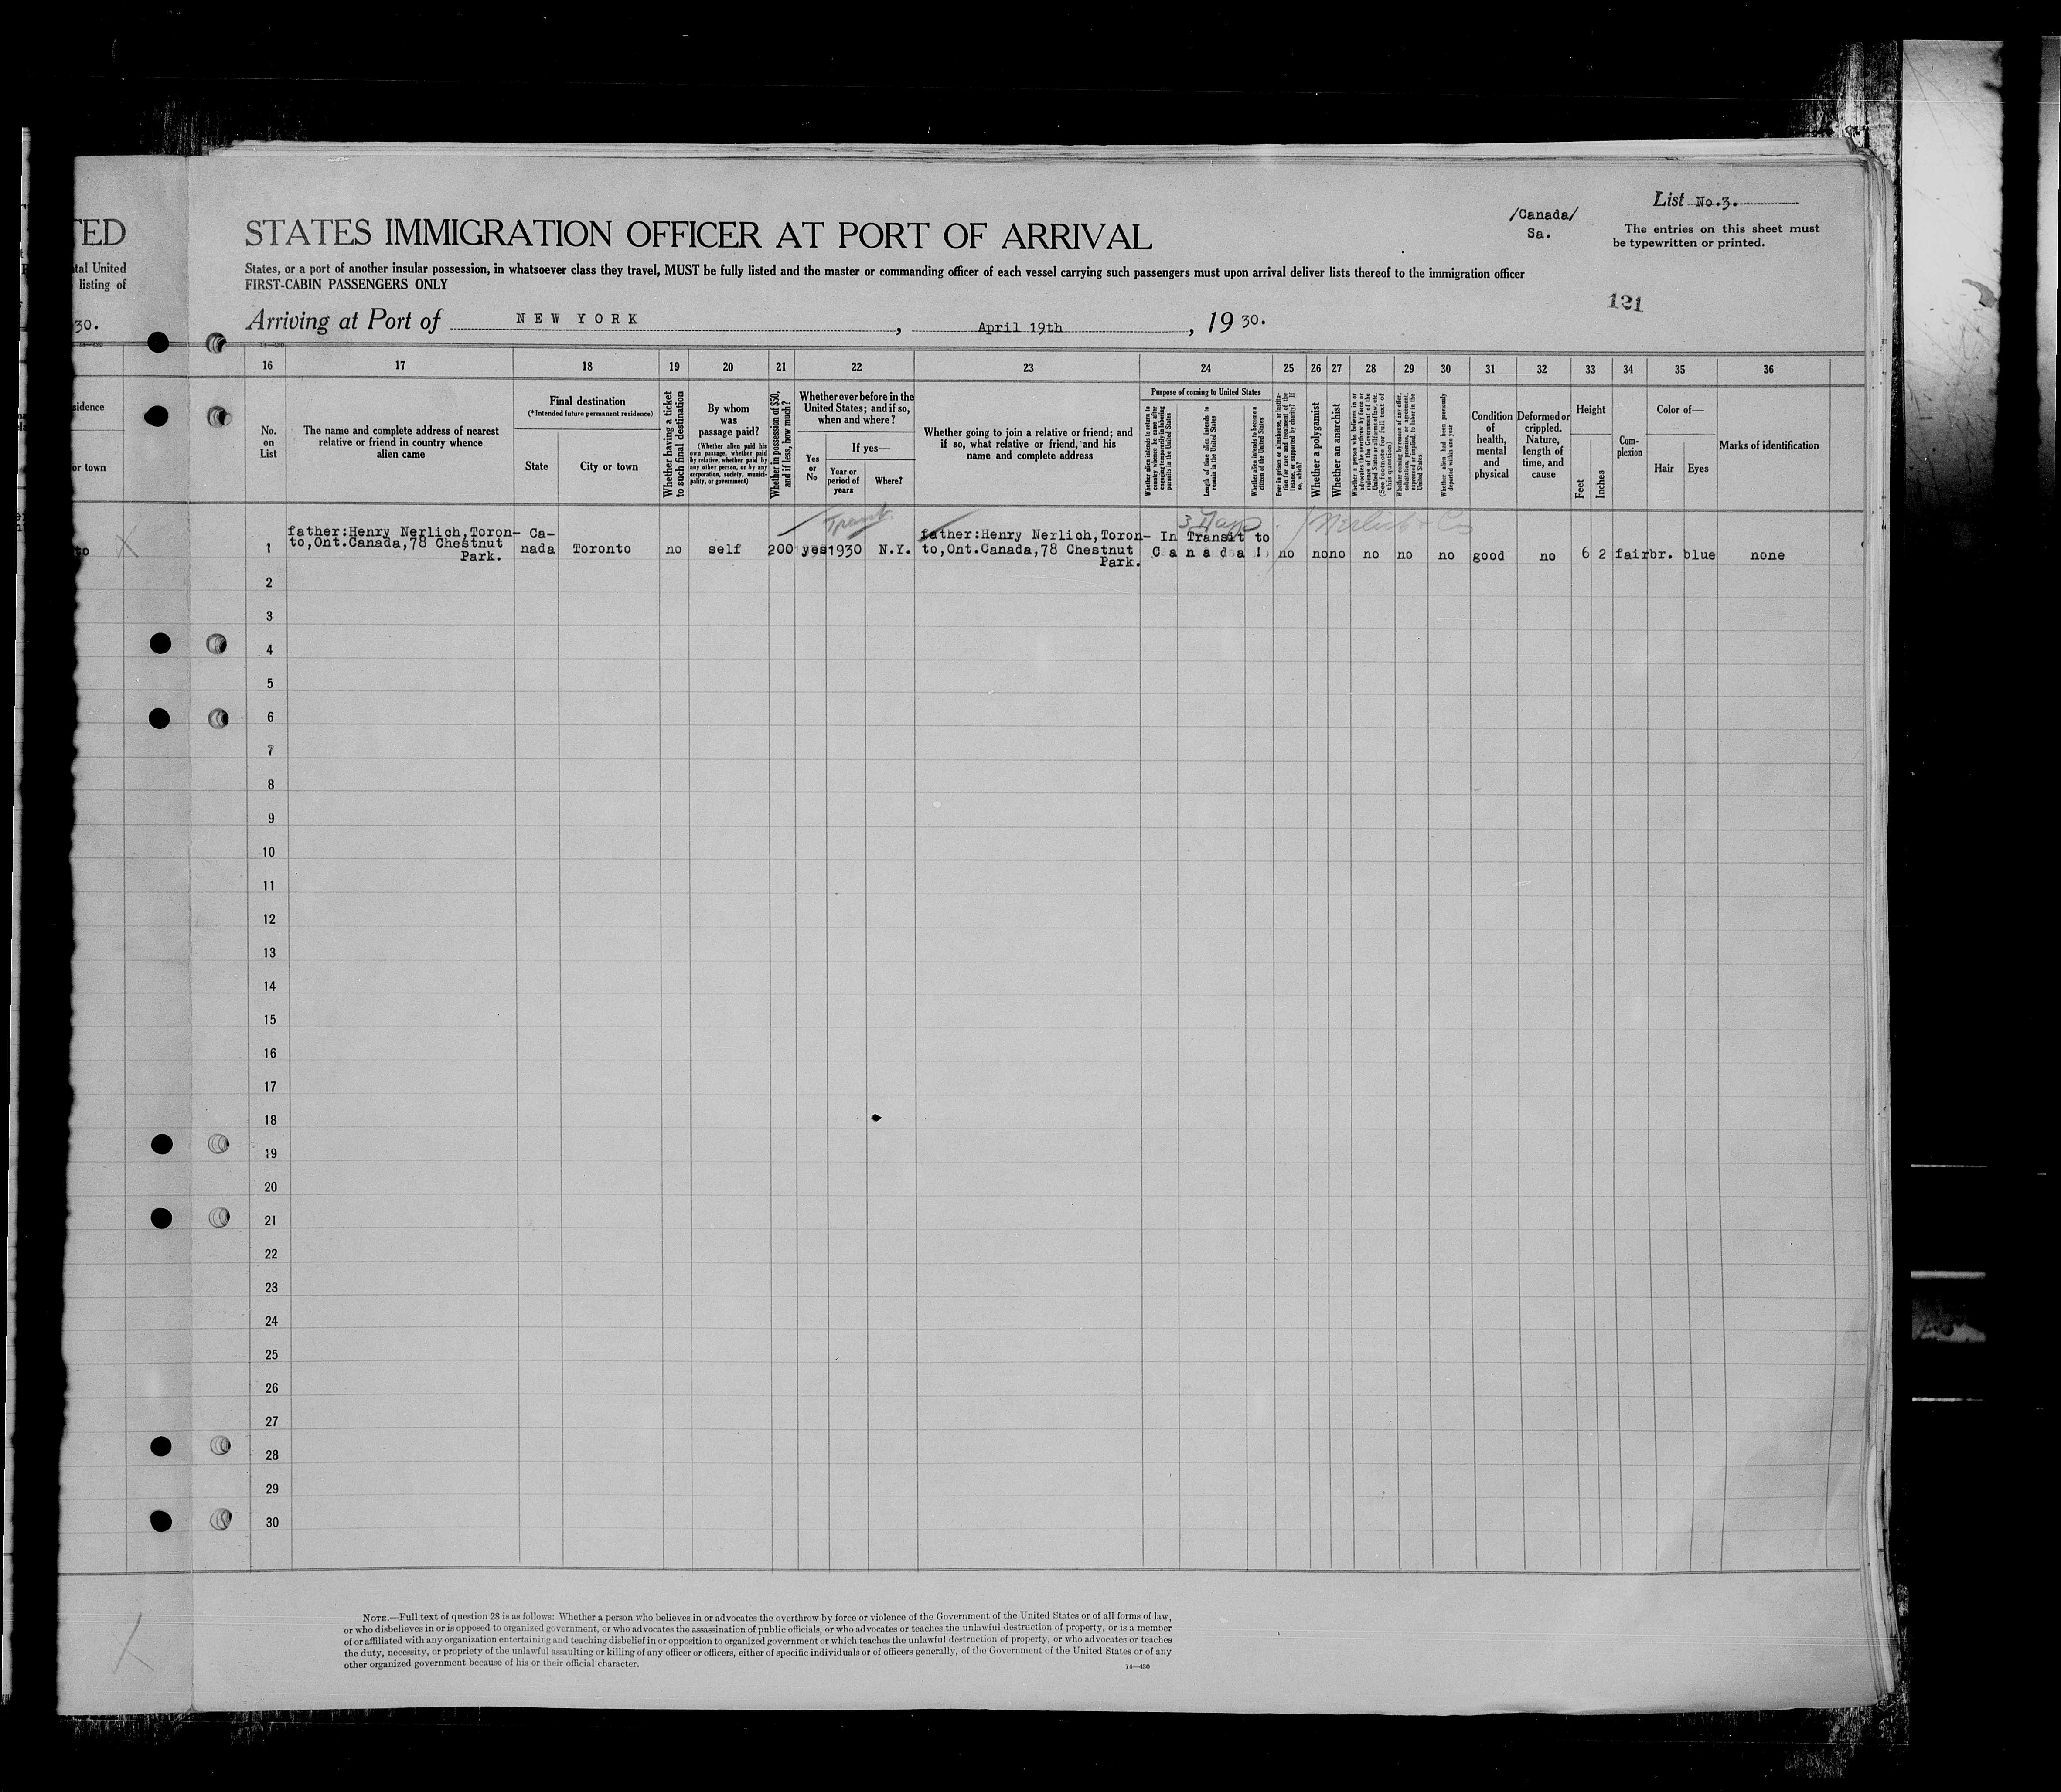 TED
tal United
listing of
30.
sidence
or town
to
List No.3.
/Canada/
Sa.
The entries on this sheet must
be typewritten or printed.
STATES IMMIGRATION OFFICER AT PORT OF ARRIVAL
States, or a port of another insular possession, in whatsoever class they travel, MUST be fully listed and the master or commanding officer of each vessel carrying such passengers must upon arrival deliver lists thereof to the immigration officer
FIRST-CABIN PASSENGERS ONLY
121
Arriving at Port of NEW YORK, April 19th, 1930.
16 17 18 19 20 21 22 23 24 25 26 27 28 29 30 31 32 33 34 35 36
No.
on
List
The name and complete address of nearest
relative or friend in country whence
alien came
Final destination
(*Intended future permanent residence)
State
City or town
Whether having a ticket
to such final destination
By whom
was
passage paid?
(Whether alien paid his
own passage, whether paid
by relative, whether paid by
any other person, or by any
corporation, society, munici-
pality, or government)
Whether in possession of $50,
and if less, how much?
Whether ever before in the
United States; and if so,
when and where?
Yes
or
No
If yes—
Year or
period of
years
Where?
Whether going to join a relative or friend; and
if so, what relative or friend, and his
name and complete address
Purpose of coming to United States
Whether alien intends to return to
country whence he came after
engaging temporarily in laboring
pursuits in the United States
Length of time alien intends to
remain in the United States
Whether alien intends to become a
citizen of the United States
Ever in prison or almshouse, or institu-
tion for care and treatment of the
insane, or supported by charity? If
so, which?
Whether a polygamist
Whether an anarchist
Whether a person who believes in or
advocates the overthrow by force or
violence of the Government of the
United States or all forms of law, etc.
(See footnote for full text of
this question)
Whether coming by reason of any offer,
solicitation, promise, or agreement,
expressed or implied, to labor in the
United States
Whether alien had been previously
deported within one year
Condition
of
health,
mental
and
physical
Deformed or
crippled.
Nature,
length of
time, and
cause
Height
Feet
Inches
Com-
plexion
Color of—
Hair
Eyes
Marks of identification
3 Days
Nerlich & Co
1 father:Henry Nerlich,Toron-to,Ont.Canada,78 Chestnut Park. Ca-nada Toronto no self 200 yes 1930 N.Y. father:Henry Nerlich,Toron-to,Ont.Canada,78 Chestnut Park. In Transit to Canada! no no no no no no good no 6 2 fair br. blue none
2
3
4
5
6
7
8
9
10
11
12
13
14
15
16
17
18
19
20
21
22
23
24
25
26
27
28
29
30
NOTE.—Full text of question 28 is as follows: Whether a person who believes in or advocates the overthrow by force or violence of the Government of the United States or of all forms of law,
or who disbelieves in or is opposed to organized government, or who advocates the assassination of public officials, or who advocates or teaches the unlawful destruction of property, or is a member
of or affiliated with any organization entertaining and teaching disbelief in or opposition to organized government or which teaches the unlawful destruction of property, or who advocates or teaches
the duty, necessity, or propriety of the unlawful assaulting or killing of any officer or officers, either of specific individuals or of officers generally, of the Government of the United States or of any
other organized government because of his or their official character.
14—430